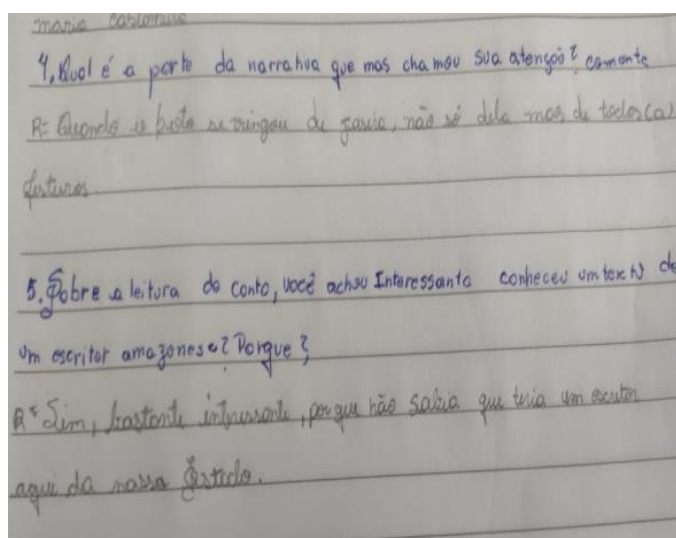 maria
4. Qual é a parte da narrativa que mas chamou sua atenção? comente
R= Quando o boto se vingou de, não só dela mas de todos(a)
futuros.
5. Sobre a leitura do conto, você achou Interessante conheceu um texto de
um escritor amazonese? Porque?
R= Sim, bastante intressante, por que não sabia que teria um escritor
aqui da nossa Estado.